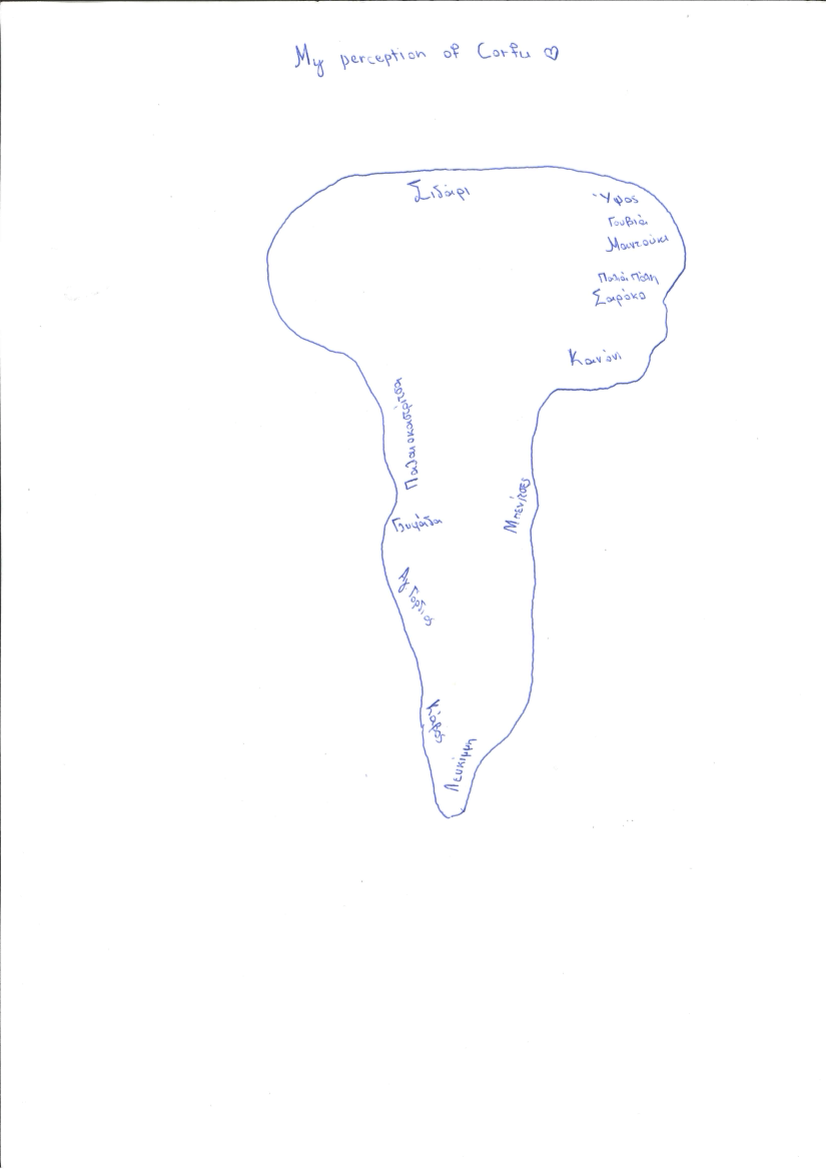 My perception of Corfu ♡
Σιδάρι
Ύψος
Γουβιά
Μαντούκι
Παλαιόπολη
Σαρόκο
Κανόνι
Παλαιοκαστρίτσα
Μπενίτσες
Γλυφάδα
Αγ Γόρδιος
Λευκίμμη